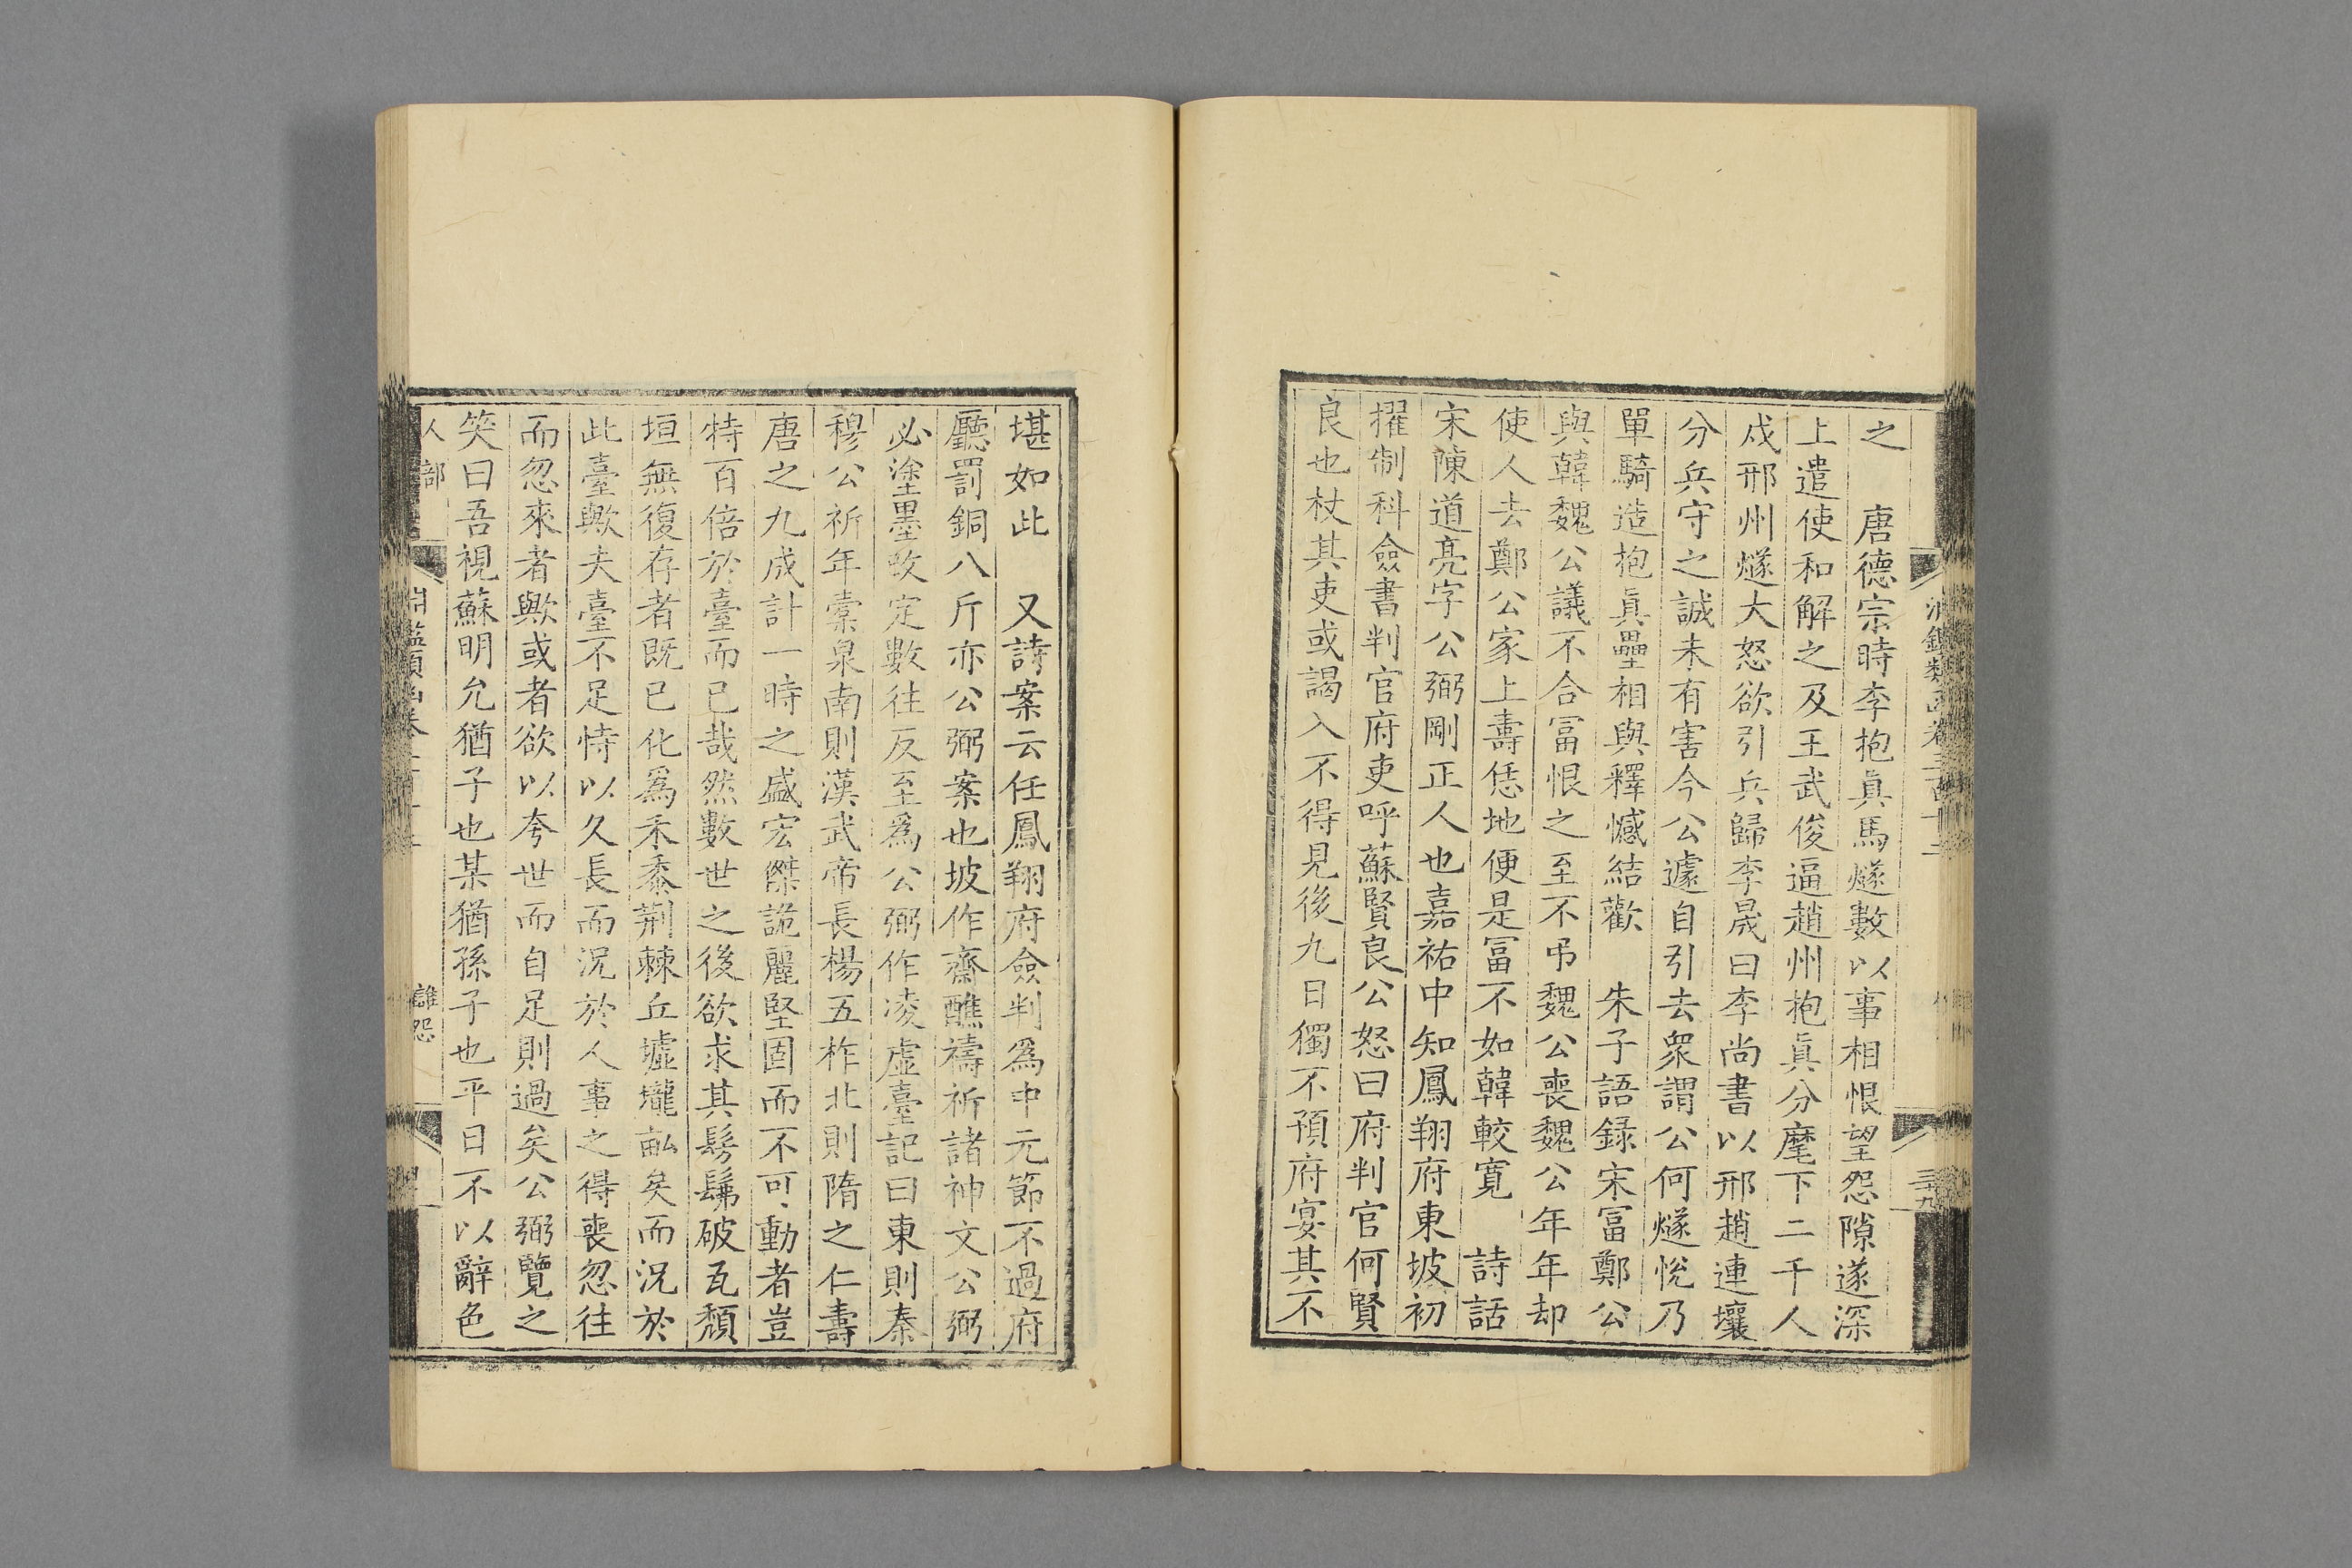 之　唐德宗時李抱眞馬燧數以事相恨望怨隙遂深
上遣使和解之及王武俊逼趙州抱眞分麾下二千人
戍邢州燧大怒欲引兵歸李晟曰李尚書以邢趙連壤
分兵守之誠未有害今公遽自引去衆謂公何燧悅乃
單騎造抱眞壘相與釋憾結歡　朱子語録宋冨鄭公
與韓魏公議不合冨恨之至不弔魏公喪魏公年年却
使人去鄭公家上壽恁地便是冨不如韓較寛　詩話
宋陳道亮字公弼剛正人也嘉祐中知鳳翔府東坡初
擢制科僉書判官府吏呼蘇賢良公怒曰府判官何賢
良也杖其吏或謁入不得見後九日獨不預府宴其不
堪如此　又詩案云任鳳翔府僉判爲中元節不過府
廳罰銅八斤亦公弼案也坡作齋醮禱祈諸神文公弼
必塗墨改定數往反至爲公弼作凌虛臺記曰東則秦
穆公祈年橐泉南則漢武帝長楊五柞北則隋之仁壽
唐之九成計一時之盛宏傑詭麗堅固而不可動者豈
特百倍於臺而已哉然數世之後欲求其髣髴破瓦頹
垣無復存者既已化爲禾黍荆棘丘墟壠畝矣而況於
此臺歟夫臺不足恃以久長而況於人事之得喪忽往
而忽來者歟或者欲以夸世而自足則過矣公弼覽之
笑曰吾視蘇明允猶子也某猶孫子也平日不以辭色
人部
讎怨